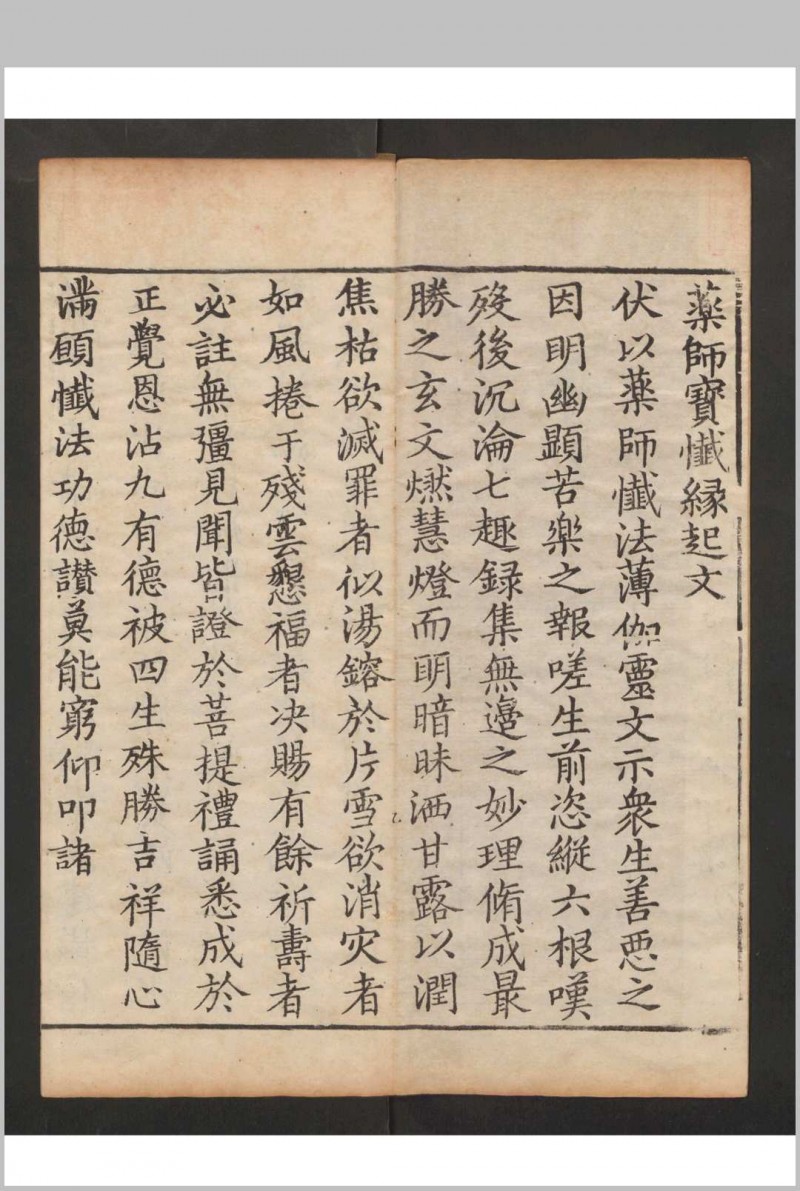 藥師寶懺縁起文
伏以藥師懺法薄伽靈文示衆生善惡之
因明幽顯苦樂之報嗟生前恣縱六根嘆
殁後沉淪七趣録集無邉之妙理脩成最
勝之玄文燃慧燈而明暗昧洒甘露以潤
焦枯欲滅罪者似湯鎔於片雪欲消灾者
如風捲于殘雲懇福者决賜有餘祈壽者
必註無彊見聞皆證於菩提禮誦悉成於
正覺恩沾九有德被四生殊勝吉祥隨心
满願懺法功德讃莫能窮仰叩諸